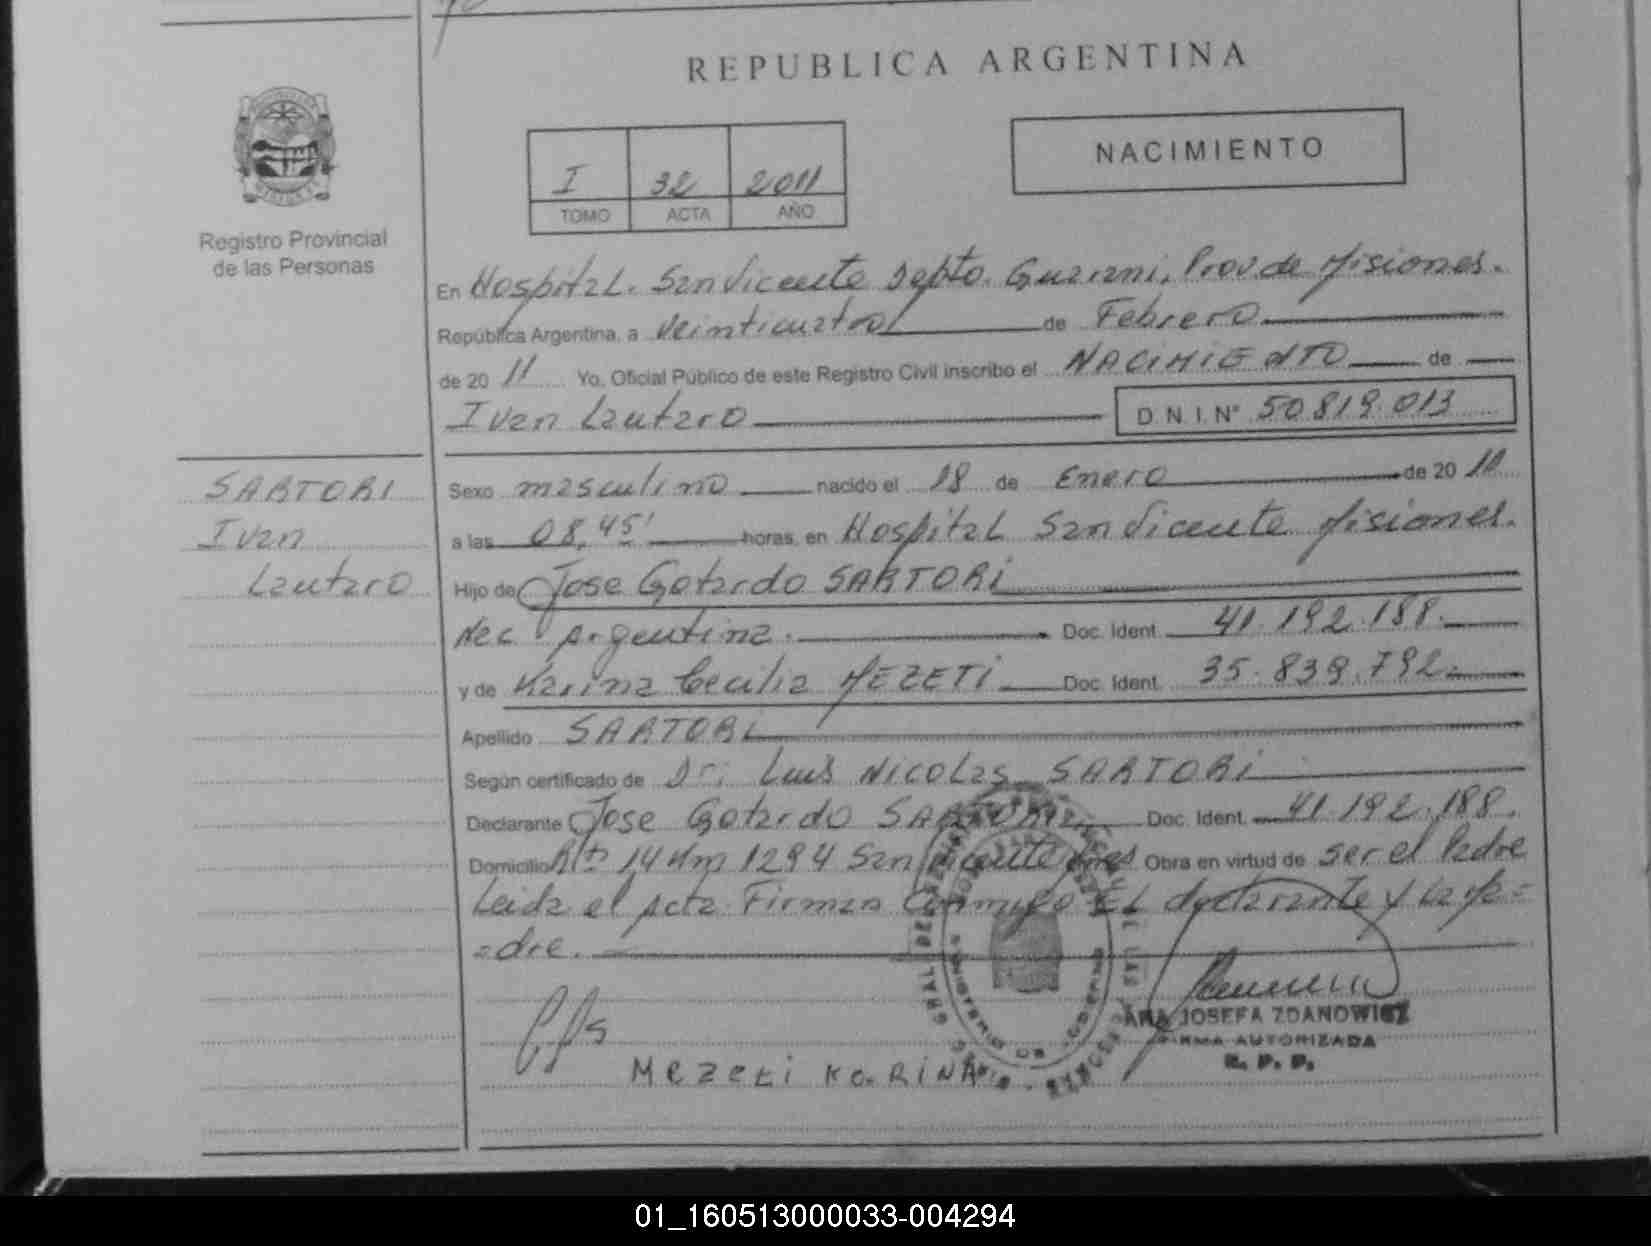 REPUBLICA ARGENTINA
NACIMIENTO
I 32 2011
TOMO ACTA AÑO
Registro Provincial
de las Personas
En Hospital. San Vicente Depto. Guarani, Prov de Misiones.
República Argentina, a veinticuatro de Febrero
de 20 11 Yo, Oficial Público de este Registro Civil inscribo el NACIMIENTO de
Ivan Lautaro D. N. I. N° 50819.013
SARTORI
Ivan
Lautaro
Sexo masculino nacido el 18 de Enero de 20 11
a las 08,45' horas, en Hospital San Vicente Misiones.
Hijo de Jose Gotardo SARTORI
Nac Argentina. Doc. Ident. 41.192.188.
y de Karina Cecilia MEZETI Doc. Ident. 35.839.792.
Apellido SARTORI
Según certificado de Dr. Luis Nicolas SARTORI
Declarante Jose Gotardo SARTORI Doc. Ident. 41.192.188.
Domicilio 14 Km 1294 San Vicente Mnes Obra en virtud de ser el Padre
Leida el Acta Firman Conmigo EL declarante y la Ma=
=dre.
ANA JOSEFA ZDANOWICZ
FIRMA AUTORIZADA
R. P. P.
MEZETI KARINA
01_160513000033-004294